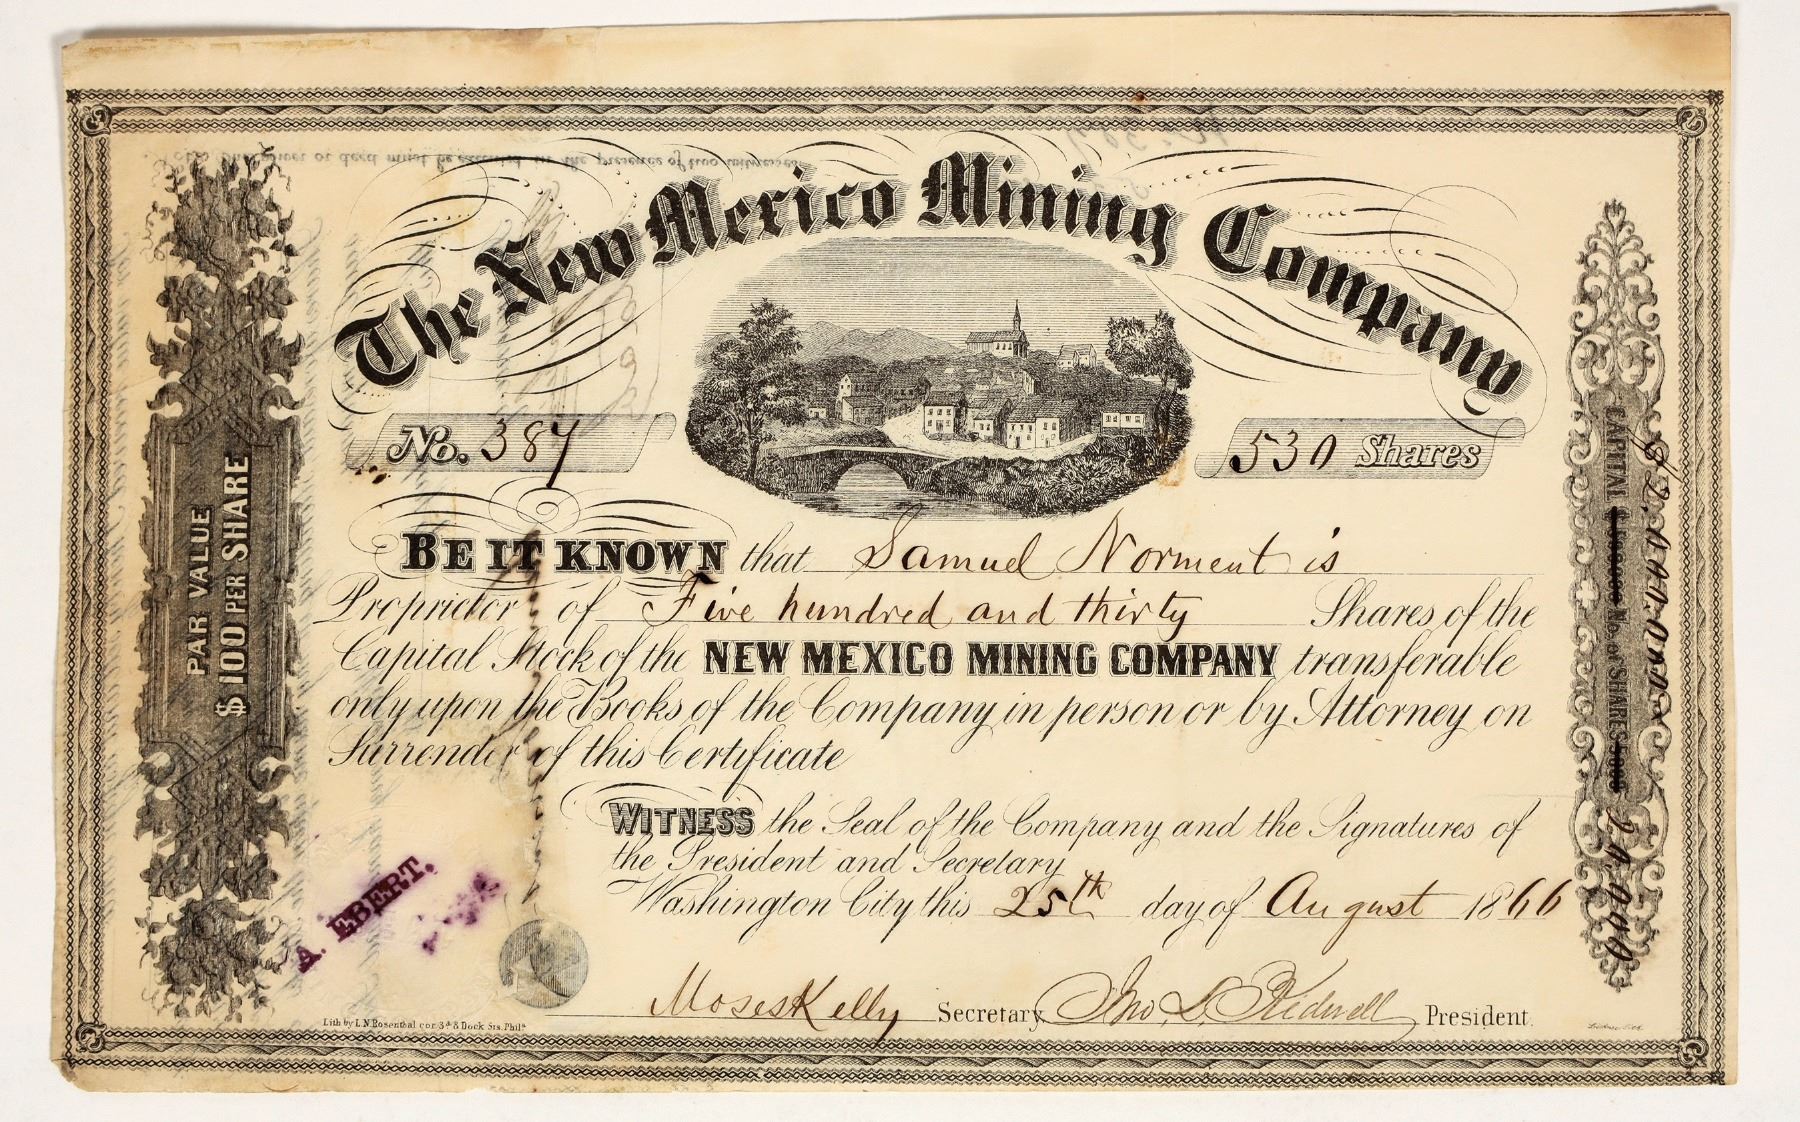 The New Mexico Mining Company
No. 387
530 Shares
BE IT KNOWN that Samuel Norment is
Proprietor of Five hundred and thirty Shares of the
Capital Stock of the NEW MEXICO MINING COMPANY transferable
only upon the Books of the Company in person or by Attorney on
Surrender of this Certificate
WITNESS the Seal of the Company and the Signatures of
the President and Secretary
Washington City this 25th day of August 1866
Moses Kelly Secretary Jno. L. Kidwell President.
Lith by L.N. Rosenthal cor. 3d & Dock Sts. Phila
PAR VALUE
$100 PER SHARE
CAPITAL No. of SHARES 20,000
$2.000.000
A. EBERT.
or deed must be executed in the presence of two witnesses